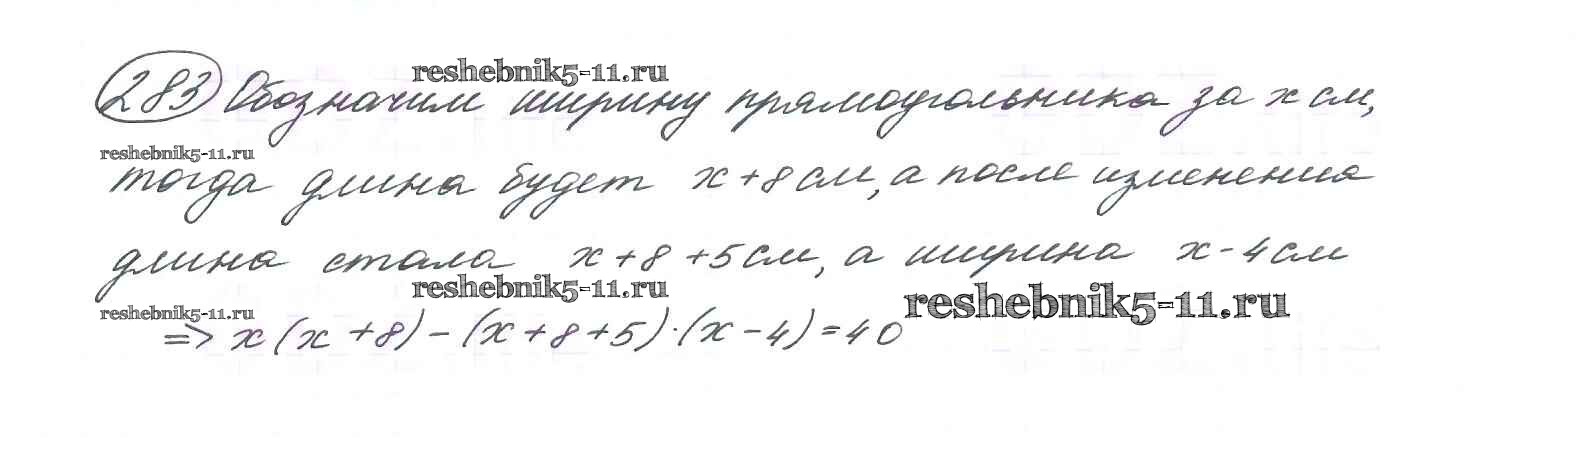 reshebnik5-11.ru
283 Обозначим ширину прямоугольника за x см,
reshebnik5-11.ru
тогда длина будет x+8 см, а после изменения
длина стала x+8+5 см, а ширина x-4 см
reshebnik5-11.ru
reshebnik5-11.ru
reshebnik5-11.ru
=> x(x+8)-(x+8+5)·(x-4)=40